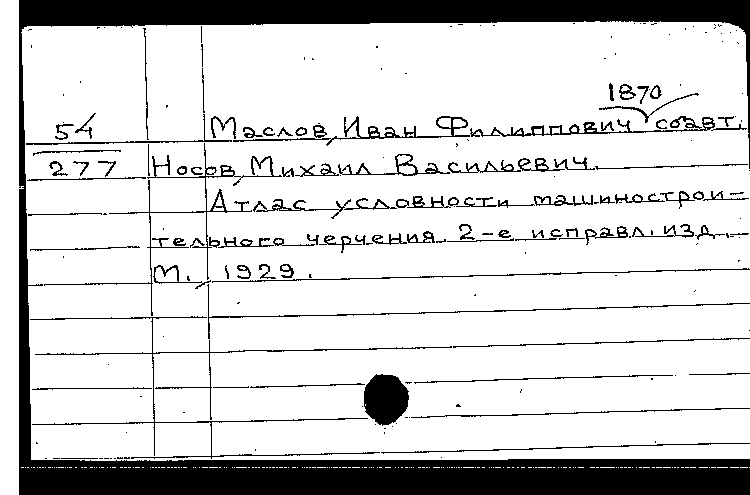 1870
54 Маслов, Иван Филиппович соавт.
277 Носов, Михаил Васильевич.
Атлас условности машинострои-
тельного черчения. 2-е исправл. изд.
М., 1929.